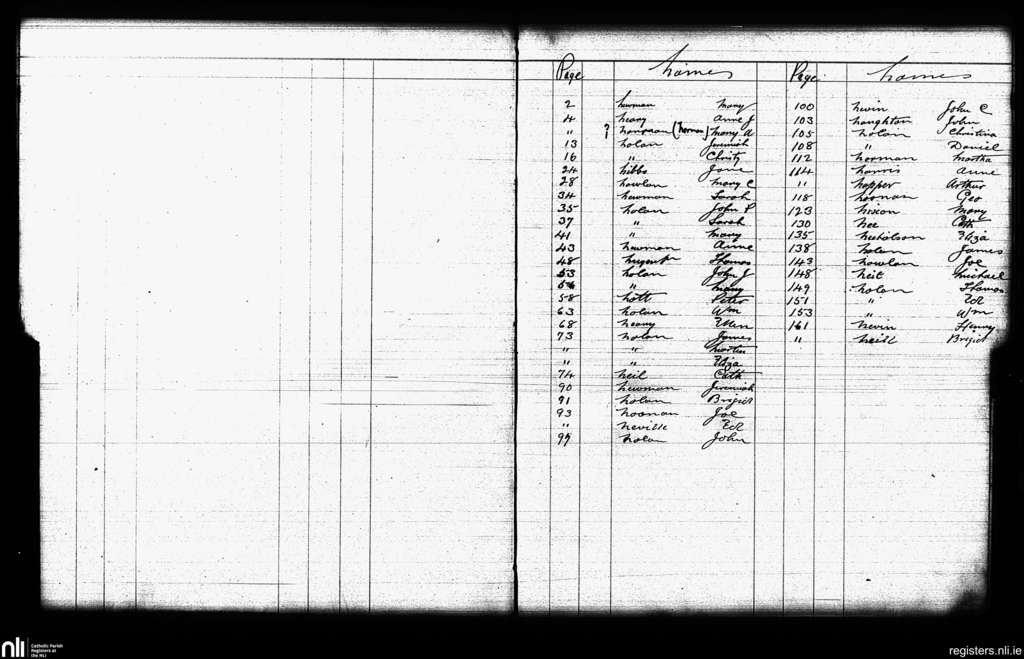 Page Names
2 Newman Mary
4 Neary Anne J
" ? Noonan (Norman) Mary A
13 Nolan Jeremiah
16 " Christy
24 Nibbs Jane
28 Nowlan Mary C
34 Newman Sarah
35 Nolan John P
37 " Sarah
41 " Mary
43 Newman Anne
48 Nugent Thomas
53 Nolan John J
54 " Mary
58 Nott Peter
63 Nolan Wm
68 Neary Ellen
73 Nolan James
" " Martin
" " Eliza
74 Neil Cath
90 Newman Jeremiah
91 Nolan Brigid
93 Noonan Joe
" Neville Ed
97 Nolan John
Page Names
100 Nevin John C
103 Naughton John
105 Nolan Christina
108 " Daniel
112 Norman Martha
114 Norris Anne
" Napper Arthur
118 Noonan Geo
123 Nixon Mary
130 Nee Cath
135 Nicholson Eliza
138 Nolan James
143 Nowlan Joe
148 Neil Michael
149 Nolan Thomas
151 " Ed
153 " Wm
161 Nevin Henry
" Neill Brigid
nli Catholic Parish
Registers at
the NLI
registers.nli.ie